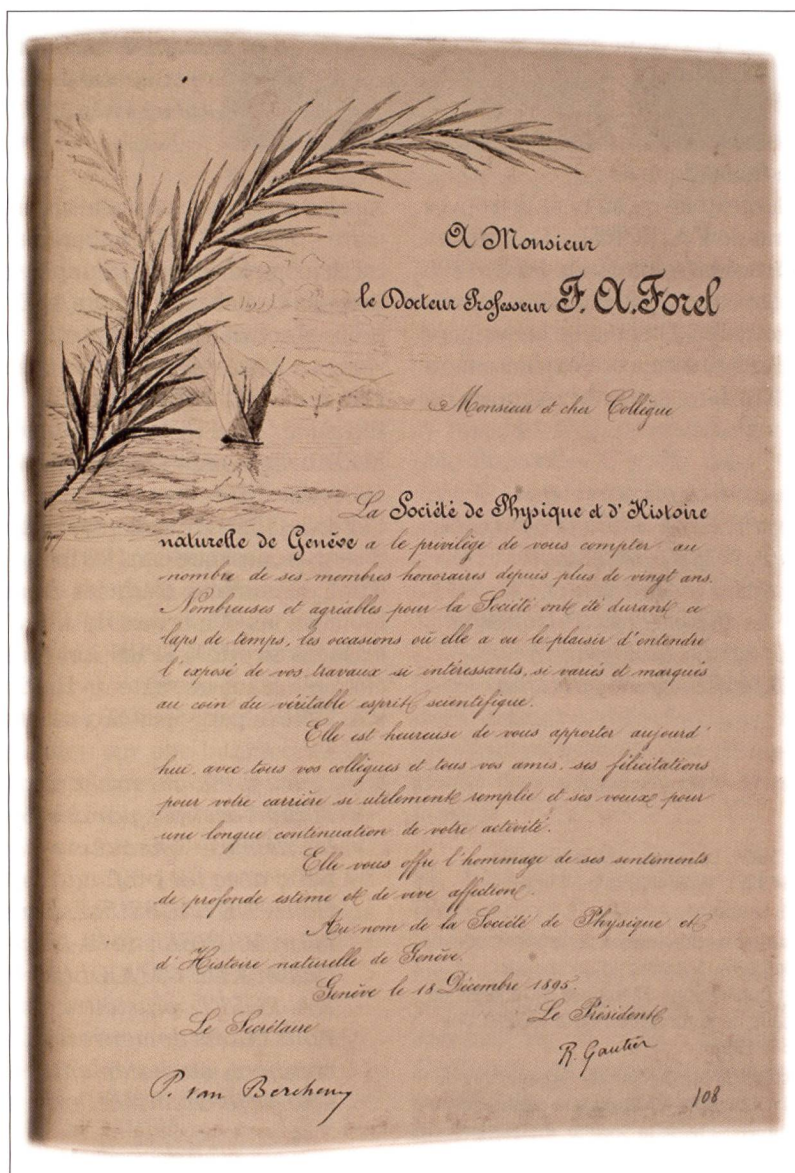 A Monsieur
le Docteur Professeur F. A. Forel
Monsieur et cher Collègue
La Société de Physique et d'Histoire
naturelle de Genève a le privilège de vous compter au
nombre de ses membres honoraires depuis plus de vingt ans.
Nombreuses et agréables pour la Société ont été durant ce
laps de temps, les occasions où elle a eu le plaisir d'entendre
l'exposé de vos travaux si intéressants, si variés et marqués
au coin du véritable esprit scientifique.
Elle est heureuse de vous apporter aujourd'
hui, avec tous vos collègues et tous vos amis, ses félicitations
pour votre carrière si utilement remplie et ses voeux pour
une longue continuation de votre activité.
Elle vous offre l'hommage de ses sentiments
de profonde estime et de vive affection.
Au nom de la Société de Physique et
d'Histoire naturelle de Genève.
Genève le 18 Décembre 1895.
Le Secrétaire Le Président
R. Gautier
P. van Berchem
108